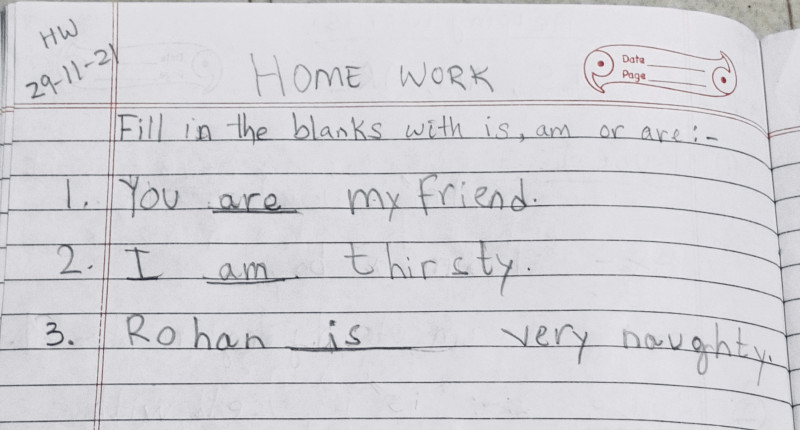 HW
29-11-21
HOME WORK
Date
Page
Fill in the blanks with is, am or are:-
1. You are my friend.
2. I am thirsty.
3. Rohan is very naughty.